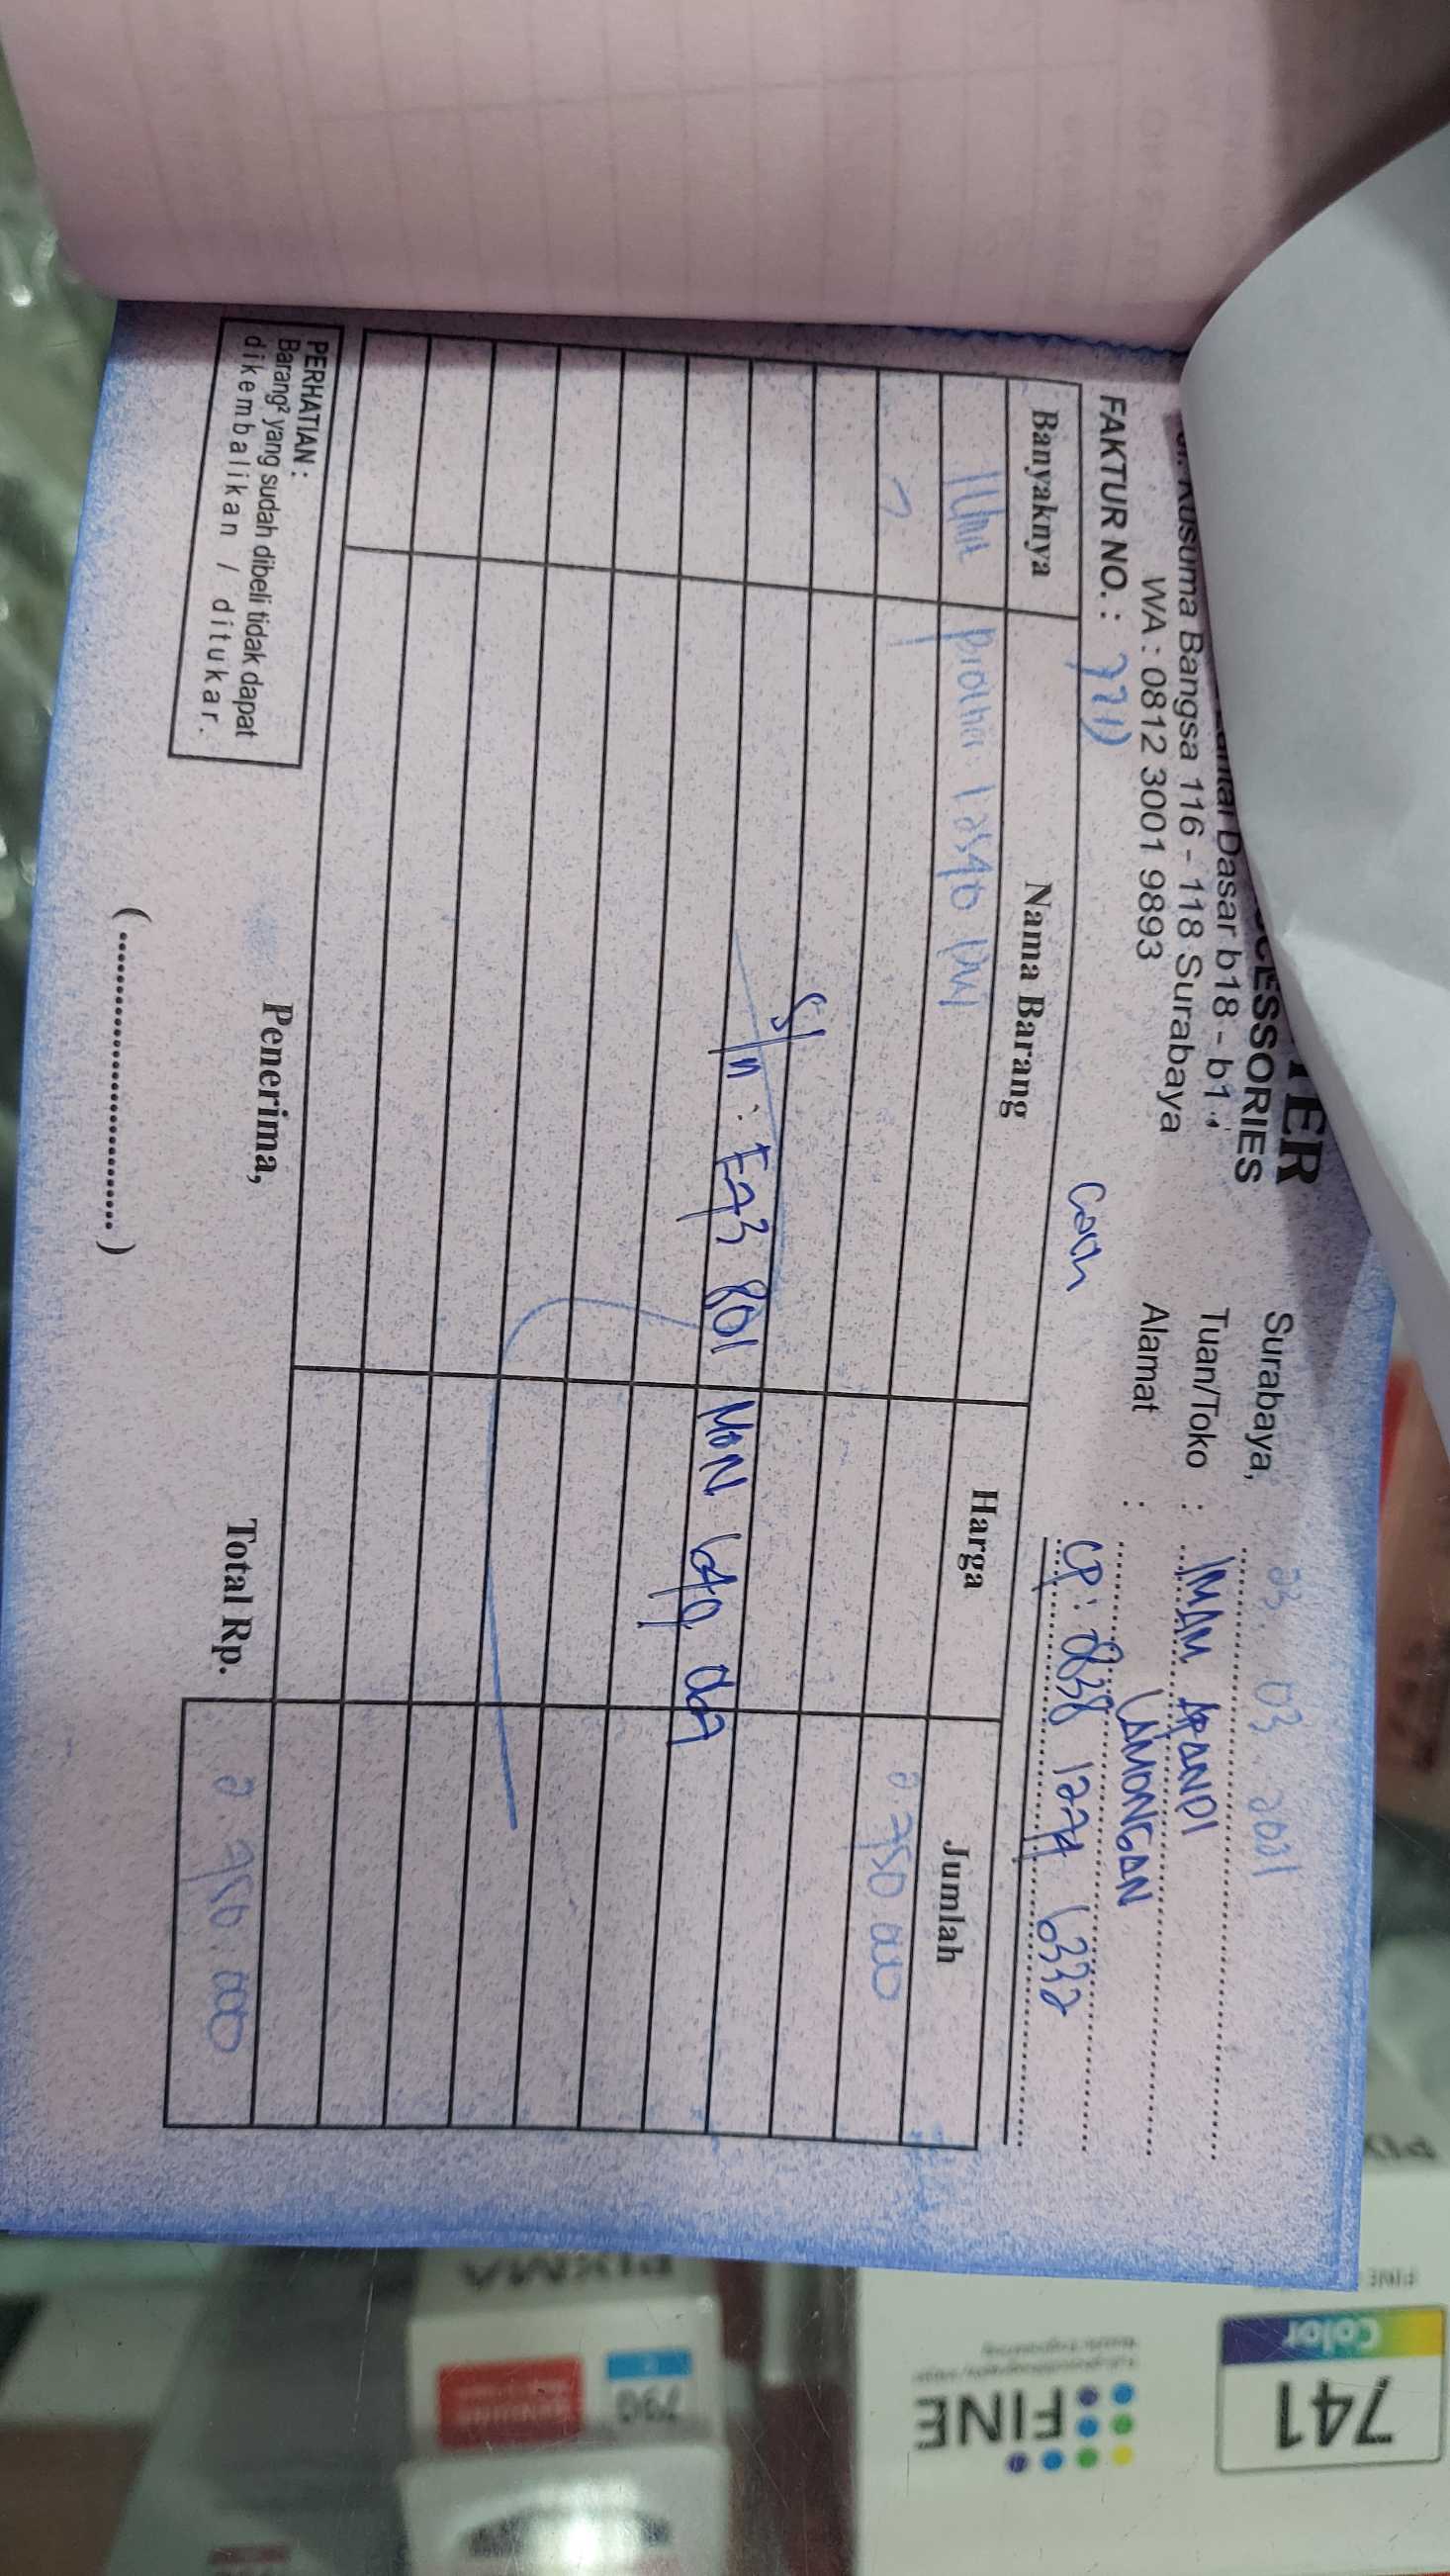 TER
CESSORIES
Dasar b18 - b1
Kusuma Bangsa 116 - 118 Surabaya
WA : 0812 3001 9893
Surabaya, 03
Tuan/Toko : IMAM APANDI
Alamat : LAMONGAN
CP : 0838 1274 6332
FAKTUR NO. :
Banyaknya Nama Barang Harga Jumlah
1 Unit
2.750.000
S/n : E73 801 M0N 649
PERHATIAN :
Barang² yang sudah dibeli tidak dapat
dikembalikan / ditukar.
Penerima,
Total Rp. 2.750.000
(..............................)
PIXMA
790
FINE
Color
741
FINE